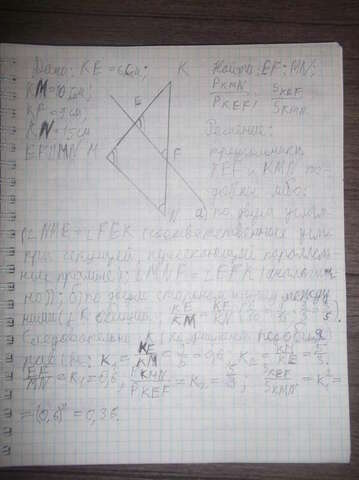 Дано: KE = 6см; K Найти: EF:MN;
KM=10см; E P KMN : P KEF; S KEF : S KMN
KF=9см; Решение:
KN=15см F треугольники
EF||MN M KEF и KMN по-
добны, ибо:
N а) по двум углам
(∠NME = ∠FEK (соответственные углы
при секущей, пересекающей параллель-
ные прямые); ∠MNF = ∠EFK (аналогич-
но)); б) по двум сторонам и углу между
ними (∠K общий; KE/KM = KF/KN
Следовательно, K (коэффициент подобия)
равен: K₁ = KE/KM = 0,6; K₂ = KM/KE = 5/3.
EF/MN = K₁ = 0,6; P KMN/P KEF = K₂ = 5/3; S KEF/S KMN = K₁² =
= (0,6)² = 0,36.